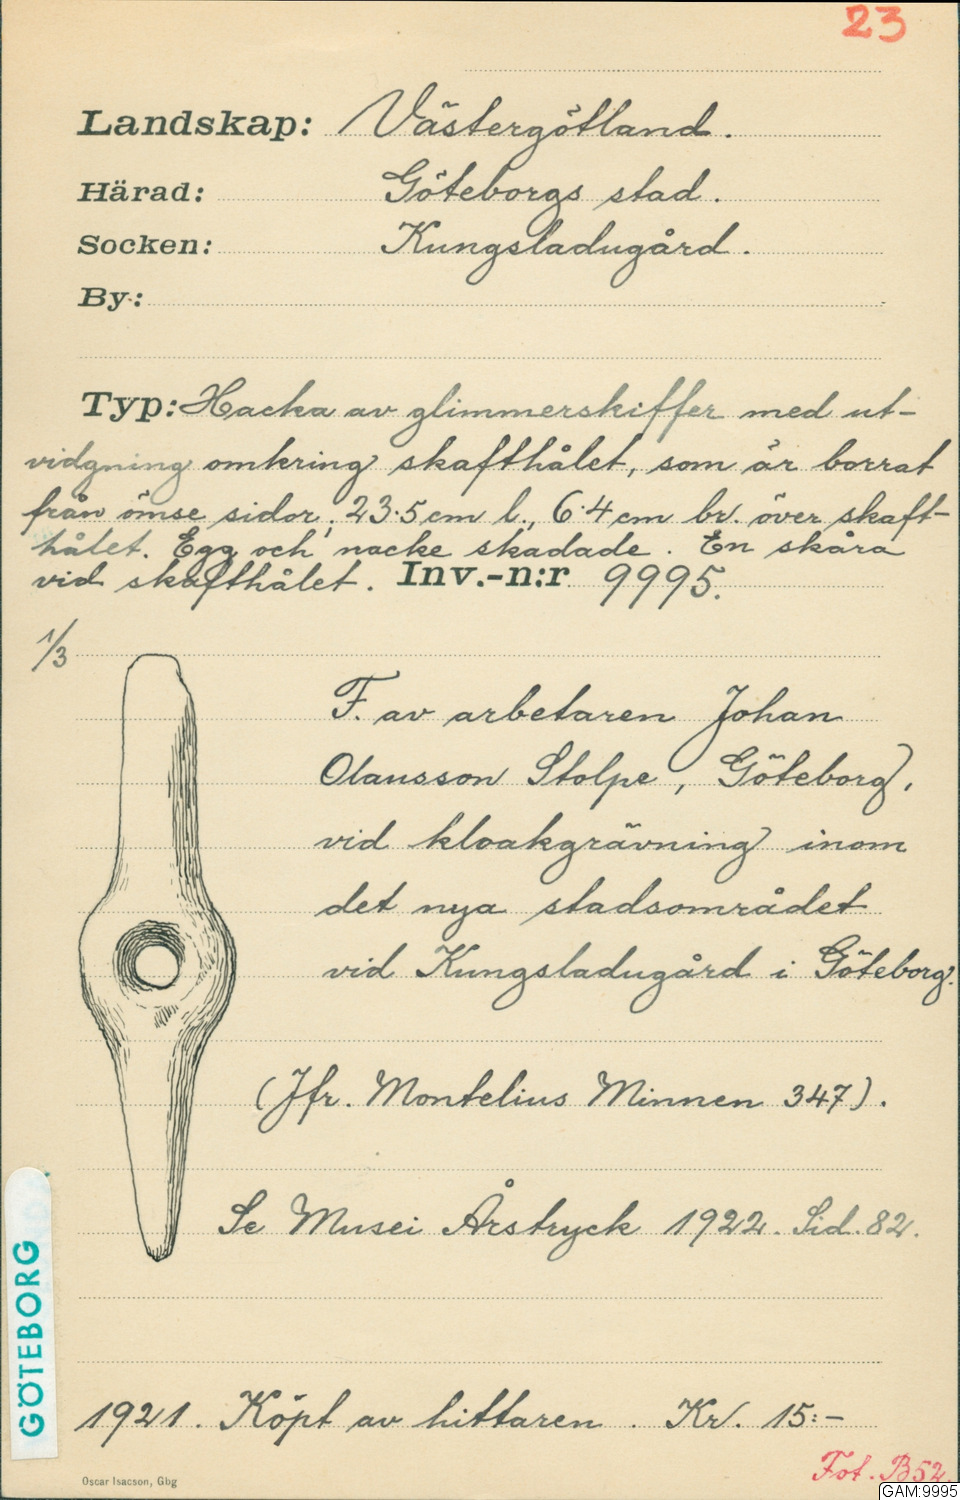 23
Landskap: Västergötland.
Härad: Göteborgs stad.
Socken: Kungsladugård.
By:
Typ: Hacka av glimmerskiffer med ut-
vidgning omkring skafthålet, som är borrat
från ömse sidor, 23·5 cm l., 6·4 cm br. över skaft-
hålet. Egg och nacke skadade. En skåra
vid skafthålet. Inv.-n:r 9995.
1/3
F. av arbetaren Johan
Olausson Stolpe, Göteborg,
vid kloakgrävning inom
det nya stadsområdet
vid Kungsladugård i Göteborg.
(Jfr. Montelius Minnen 347).
Se Musei Årstryck 1922. Sid. 82.
GÖTEBORG
1921. Köpt av hittaren. Kr. 15:-
Fot. B52.
Oscar Isacson, Gbg
GAM:9995